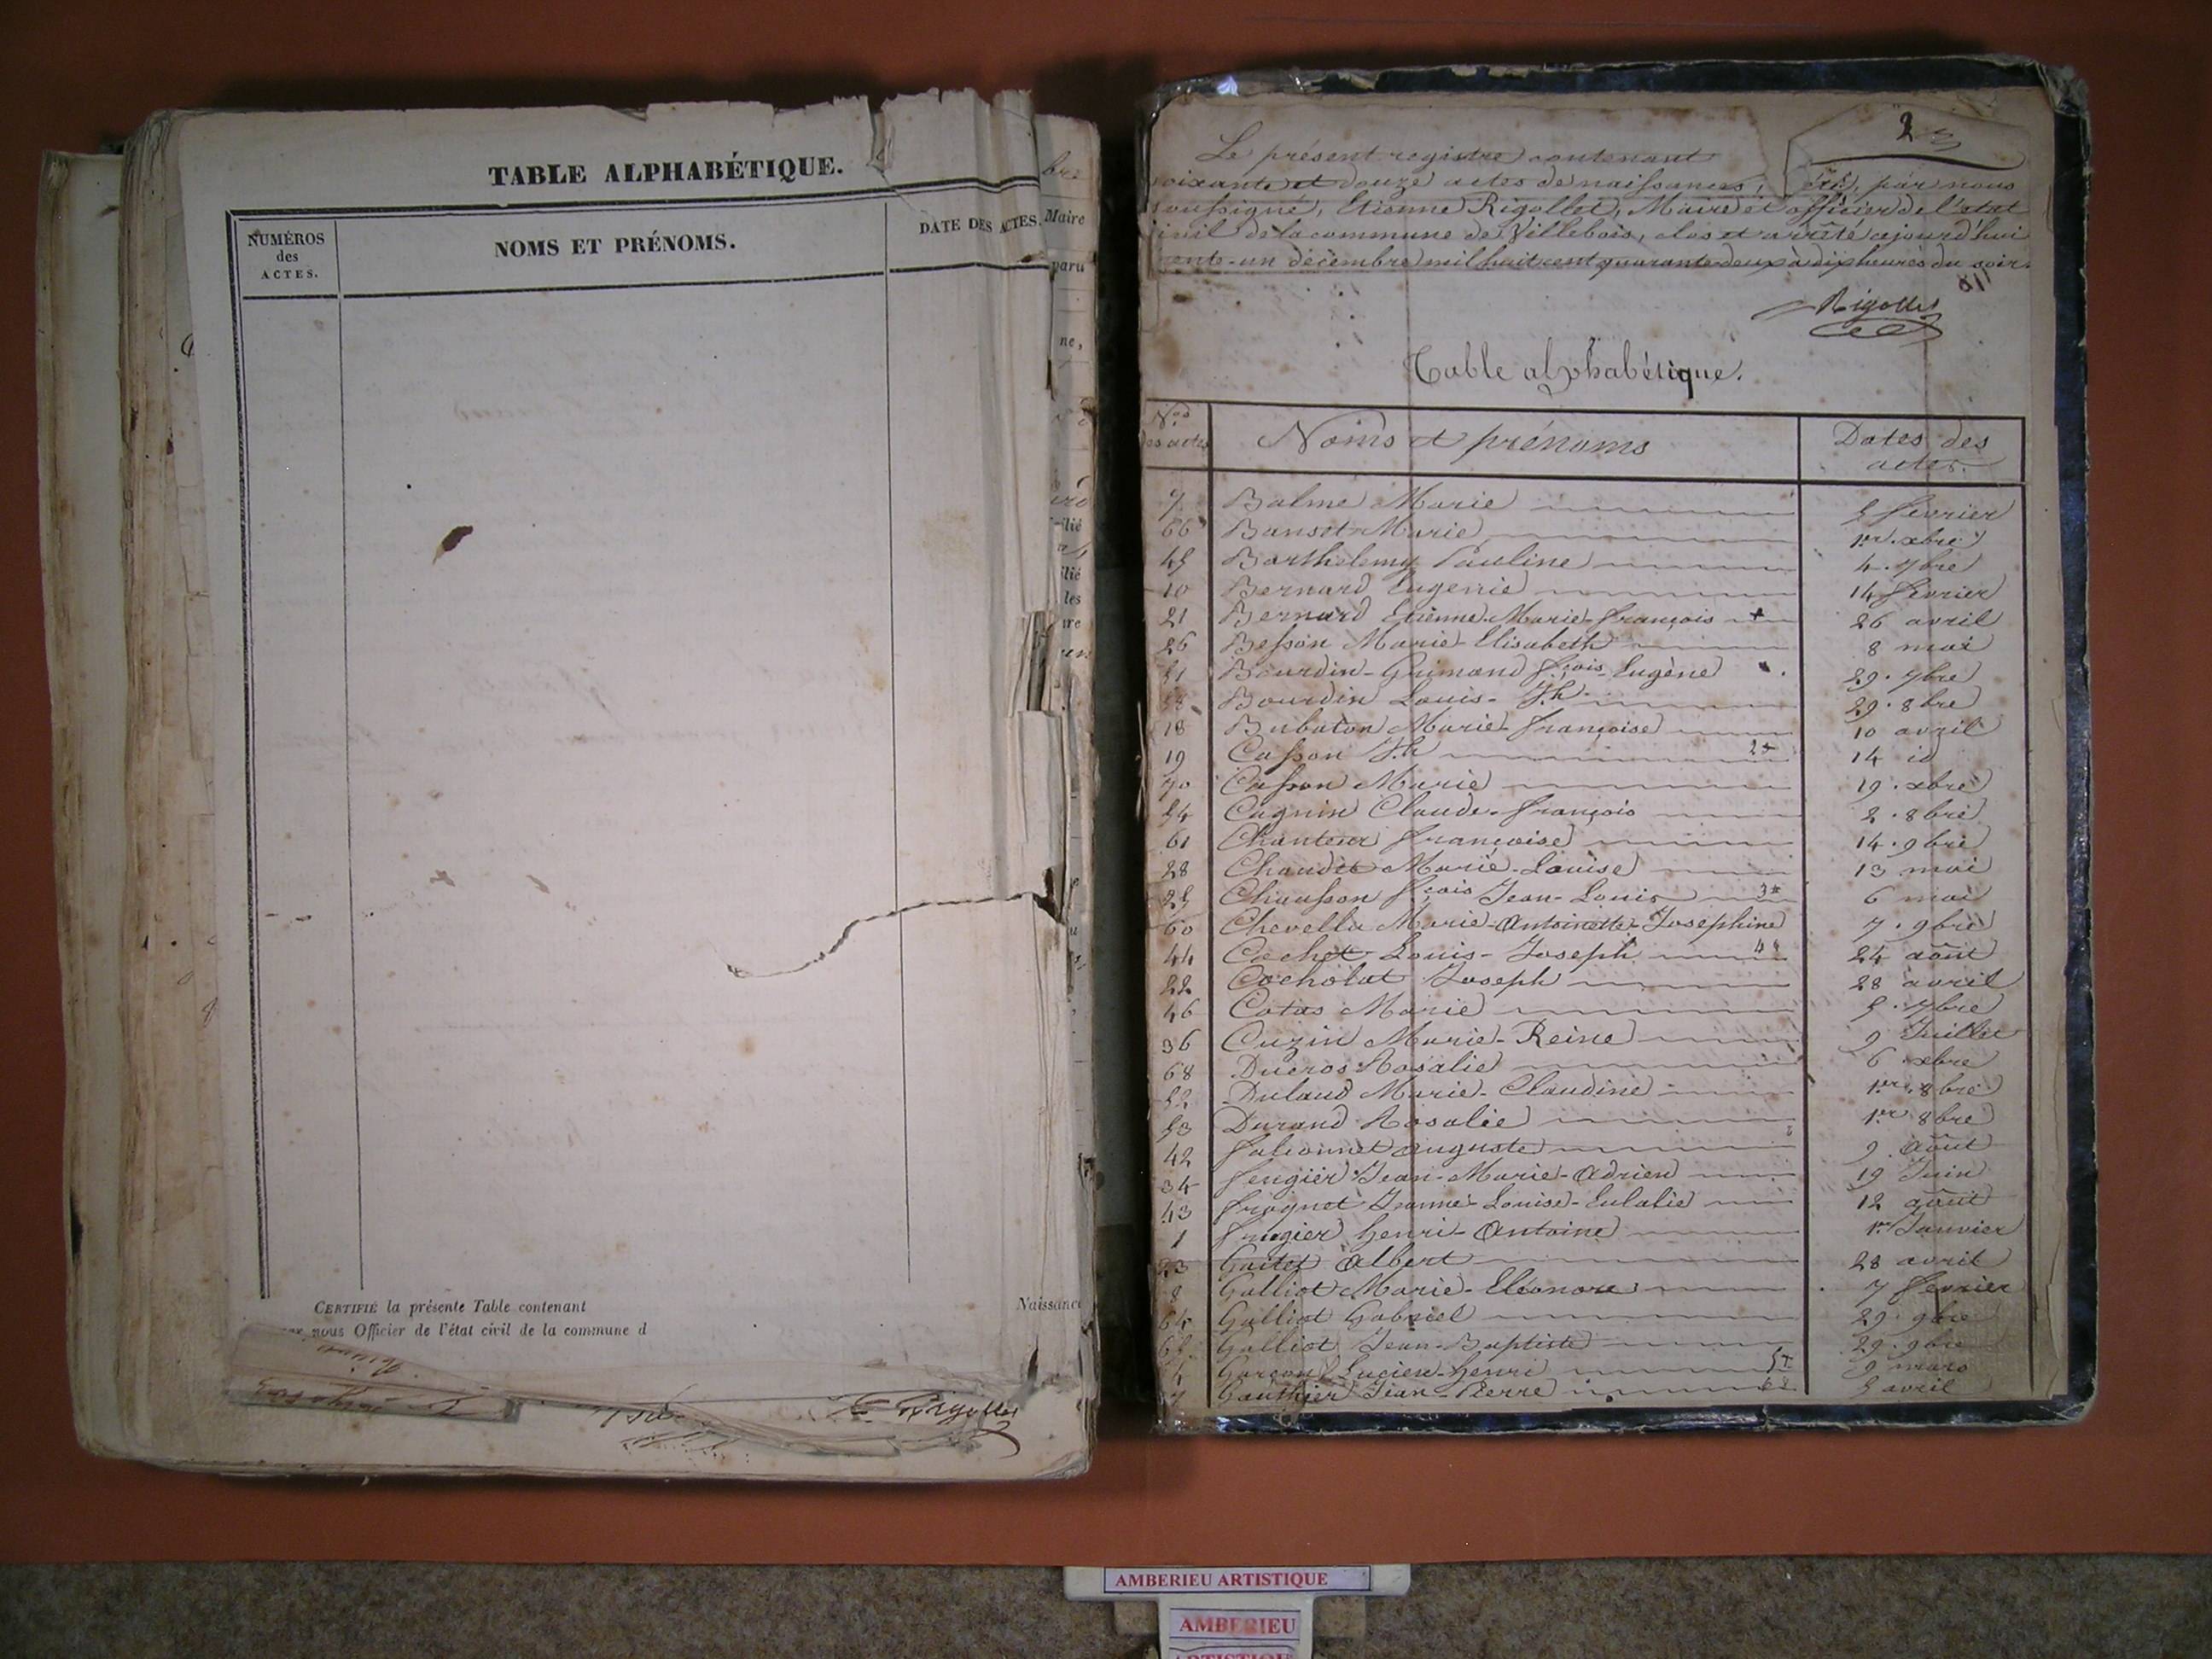 TABLE ALPHABÉTIQUE.
NUMÉROS
des
ACTES.
NOMS ET PRÉNOMS.
DATE DES ACTES.
CERTIFIÉ la présente Table contenant
Naissance
nous Officier de l'état civil de la commune d
bre
Maire
paru
ne,
ilié
lié
les
2
Le présent registre contenant
soixante et douze actes de naissances, été, par nous
soussigné, Etienne Rigollet, Maire et officier de l'état
civil de la commune de Villebois, clos et arrêté ajourd'hui
trente-un décembre mil huit cent quarante deux à dix heures du soir.
Rigollet
Table alphabétique.
Nos des actes
Noms et prénoms
Dates des actes.
7 Balme Marie 5 février
66 Banset Marie 1er xbre
45 Barthelemy Pauline 4. 7bre
10 Bernard Eugenie 14 février
21 Bernard Etienne-Marie-françois + 26 avril
26 Besson Marie-Elisabeth 8 mai
51 Bourdin-Grimond fçois-Eugène 29. 7bre
Bourdin Louis-Jh 29. 8bre
18 Bubaton Marie-françoise 10 avril
19 Casson Jh 2+ 14 id
70 Casson Marie 19. xbre
54 Cagnin Claude-françois 2. 8bre
61 Chanteur françoise 14. 9bre
28 Chaudet Marie-Louise 13 mai
25 Chausson fçois Jean-Louis 3+ 6 mai
60 Chevella Marie-Antoinette-Josephine 7. 9bre
44 Cochet Louis-Joseph 24 août
22 Cocholat Joseph 28 avril
46 Cotas Marie 5. 7bre
36 Cuzin Marie-Reine 9 Juillet
68 Ducros Rosalie 6 xbre
52 Dulaud Marie-Claudine 1er 8bre
53 Durand Rosalie 1er 8bre
42 falconnet auguste 9 août
34 feugier Jean-Marie-Adrien 19 Juin
43 frognet Jeanne-Louise-Eulalie 12 août
1 fuegier henri-Antoine 1er Janvier
23 Gaitet Albert 28 avril
8 Galliot Marie-Eléonore 7 fevrier
64 Galliot Gabriel 29. 9bre
65 Galliot Jean-Baptiste 29. 9bre
Garçon Lucien-henri 5+ 9 mars
Gauthier Jean-Pierre 5 avril
AMBERIEU ARTISTIQUE
AMBERIEU
ARTISTIQUE